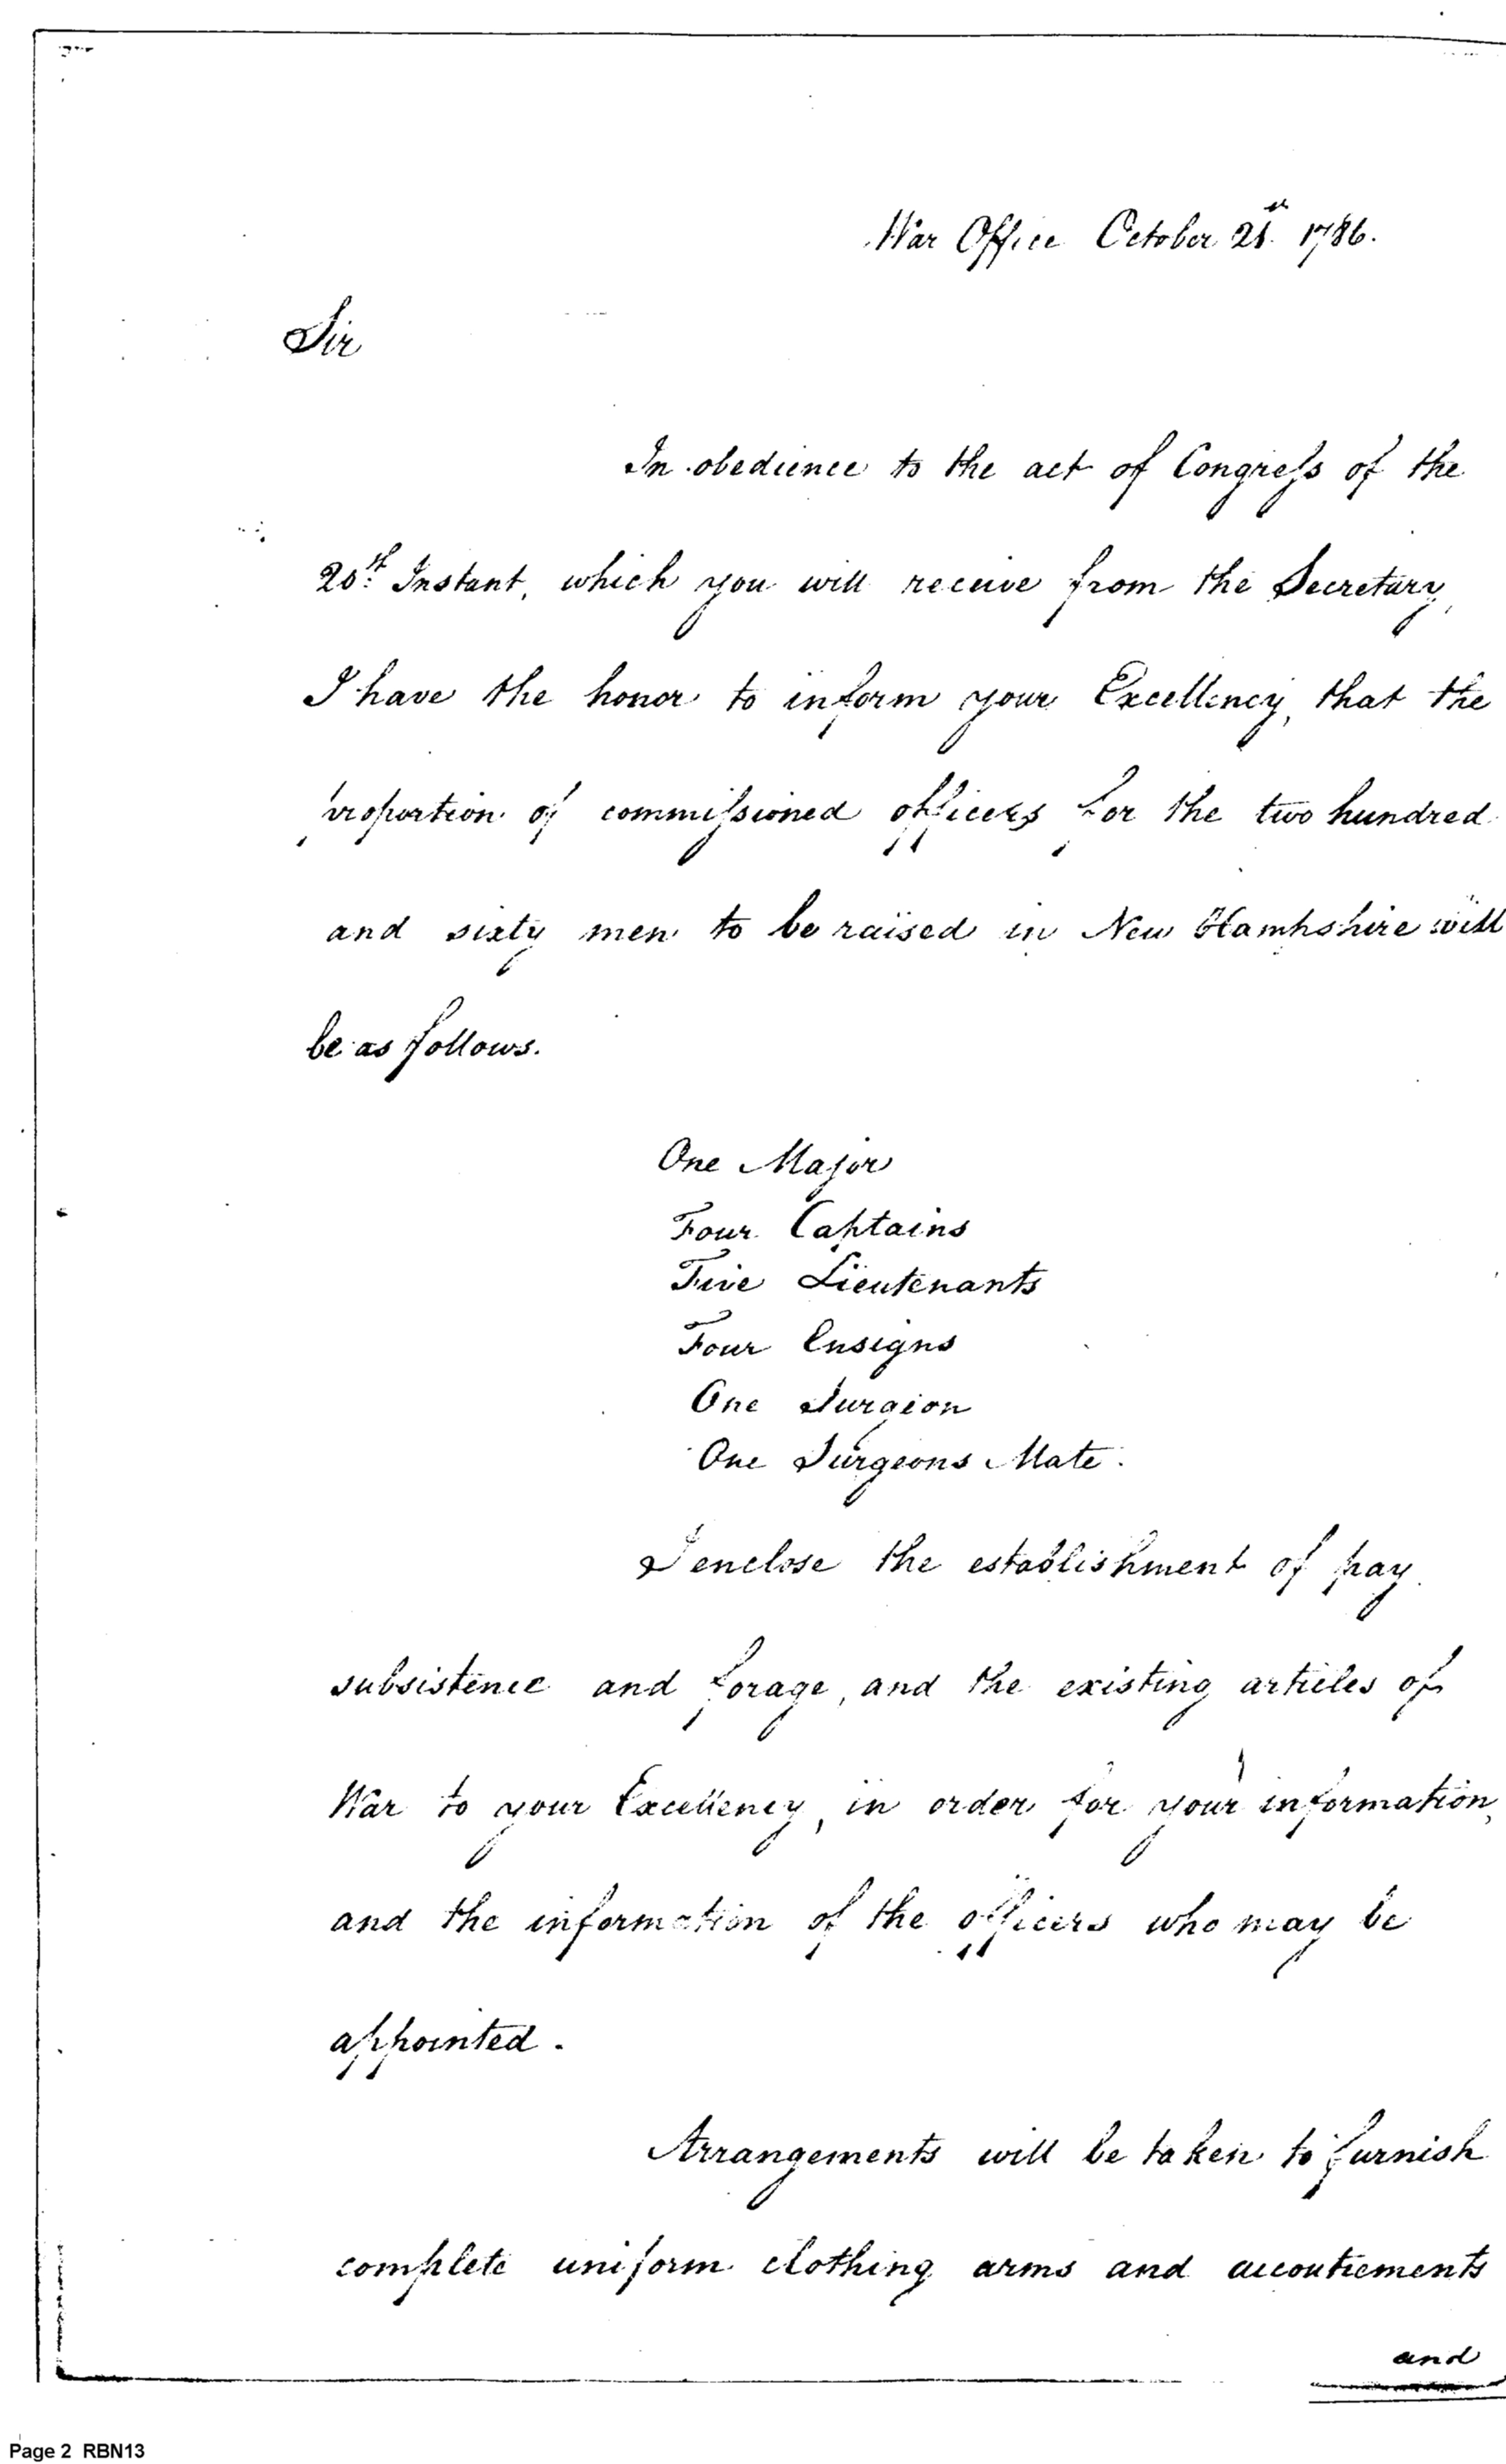 War Office October 21st 1786.
Sir
In obedience to the act of Congreſs of the
20th Instant, which you will receive from the Secretary,
I have the honor to inform your Excellency, that the
proportion of commiſsioned officers for the two hundred
and sixty men to be raised in New Hampshire will
be as follows.
One Major
Four Captains
Five Lieutenants
Four Ensigns
One Surgeon
One Surgeons Mate.
I enclose the establishment of pay
subsistence and forage, and the existing articles of
War to your Excellency, in order for your information,
and the information of the officers who may be
appointed.
Arrangements will be taken to furnish
complete uniform clothing arms and accoutrements
and
Page 2 RBN13